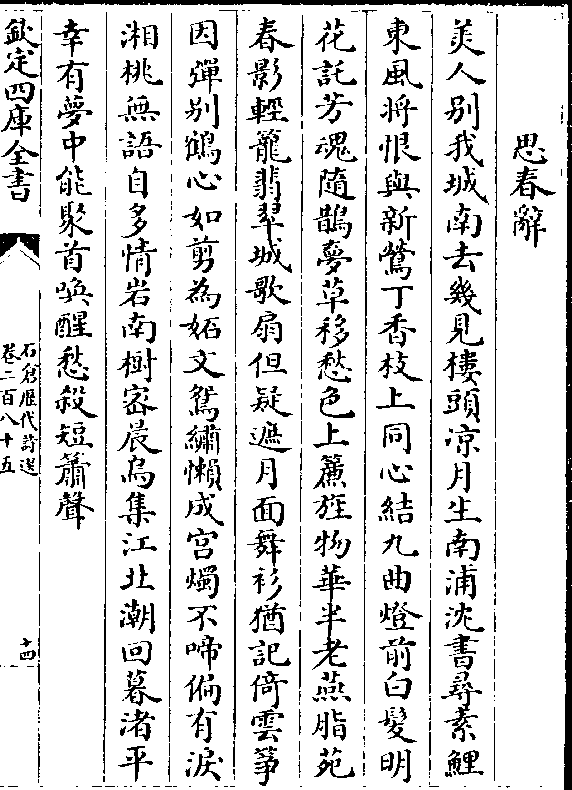 思春辭
美人别我城南去幾見樓頭凉月生南浦沈書尋素鯉
東風將恨與新鶯丁香枝上同心結九曲燈前白髮明
花託芳魂隨鵲夢草移愁色上簾旌物華半老燕脂苑
春影輕籠翡翠城歌扇但疑遮月面舞衫猶記倚雲箏
因彈别鶴心如剪為妬文鴛繡懶成宫燭不啼偏有淚
湘桃無語自多情岩南樹宻晨烏集江北潮回暮渚平
幸有夢中能聚首喚醒愁殺短簫聲
欽定四庫全書
石倉歴代詩選
卷二百八十五
十四